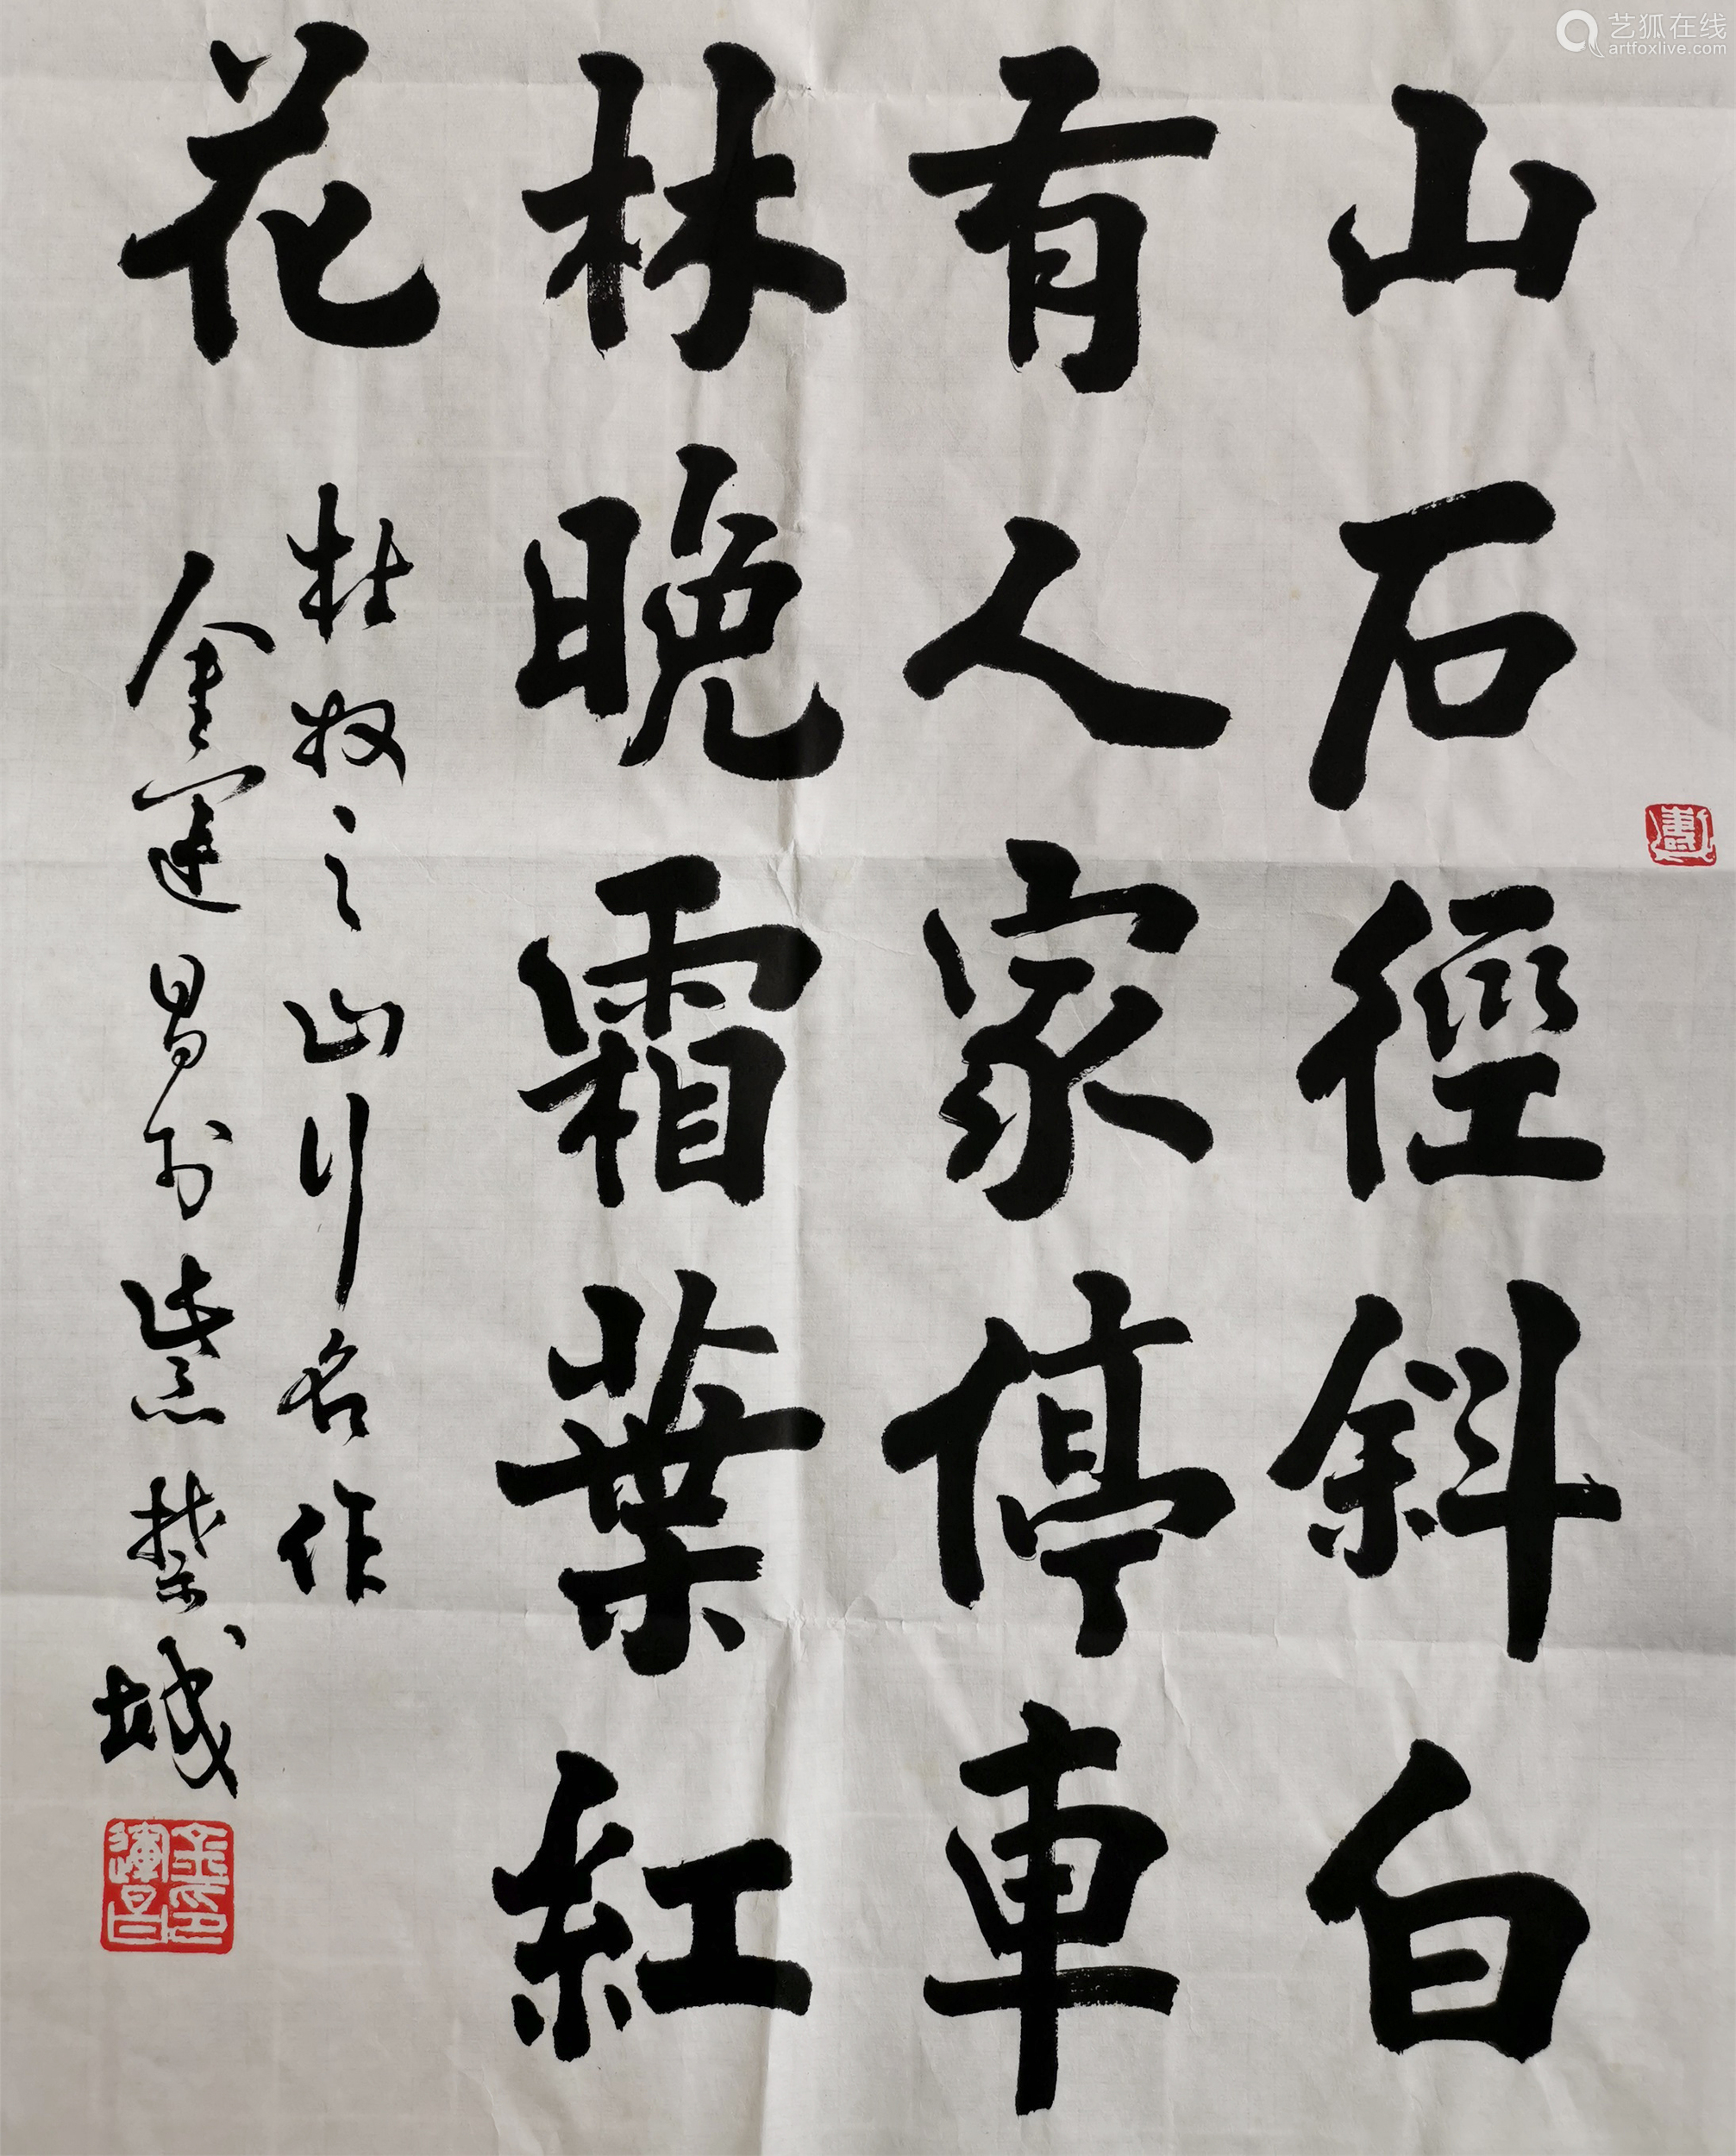 山石徑斜白
有人家停車
林晚霜葉紅
花
杜牧之山行名作
金運昌於紫禁城
金運昌印
艺狐在线
artfoxlive.com